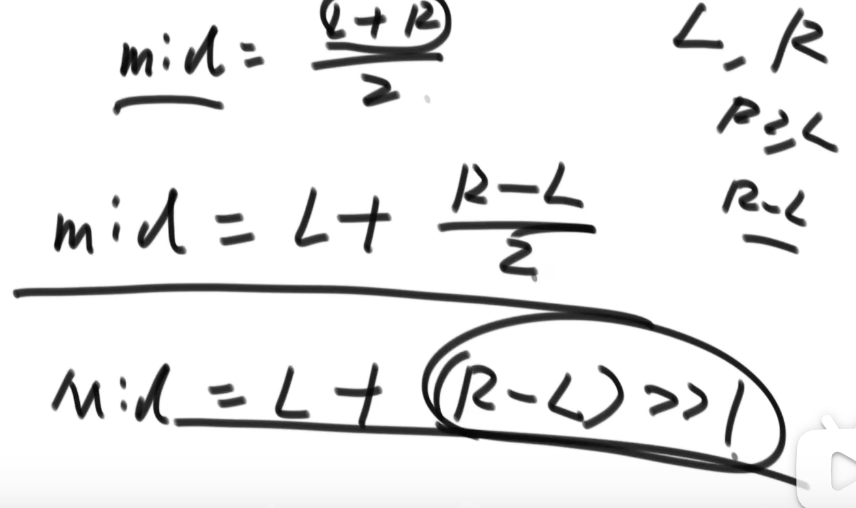 mid = (L+R)/2
L, R
R≥L
mid = L + (R-L)/2
R-L
mid = L + (R-L) >> 1